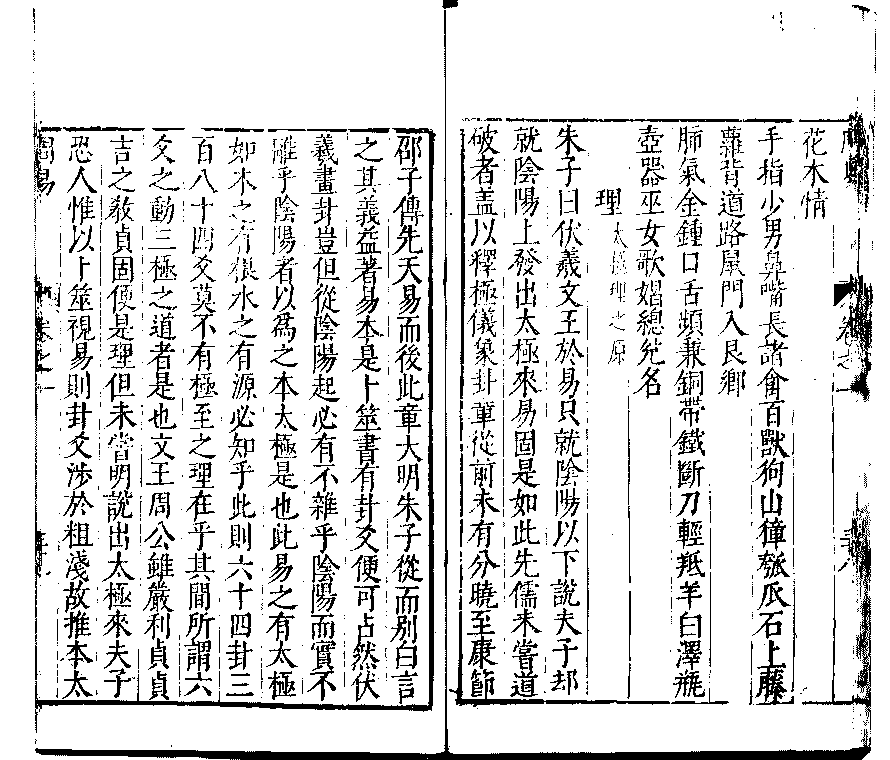 花木情
手指少男鼻嘴長諸禽百獸狗山獐瓠瓜石上藤
蘿背道路屋門入艮鄉
肺氣金鍾口舌頻兼銅帶鐵斷刀輕羝羊白澤瓶
壺器巫女歌娼總兊名
理 太極理之原
朱子曰伏羲文王於易只就陰陽以下說夫子却
就陰陽上發出太極來易固是如此先儒未嘗道
破者盖以釋極儀象卦章從前未有分曉至康節
邵子傳先天易而後此章大明朱子從而别白言
之其義益著易本是卜筮書有卦爻便可占然伏
羲畫卦豈但從陰陽起必有不雜乎陰陽而實不
離乎陰陽者以爲之本太極是也此易之有太極
如木之有根水之有源必知乎此則六十四卦三
百八十四爻莫不有極至之理在乎其間所謂六
爻之動三極之道者是也文王周公雖嚴利貞貞
吉之教貞固便是理但未嘗明說出太極來夫子
恐人惟以卜筮視易則卦爻涉於粗淺故推本太
周易
卷之一